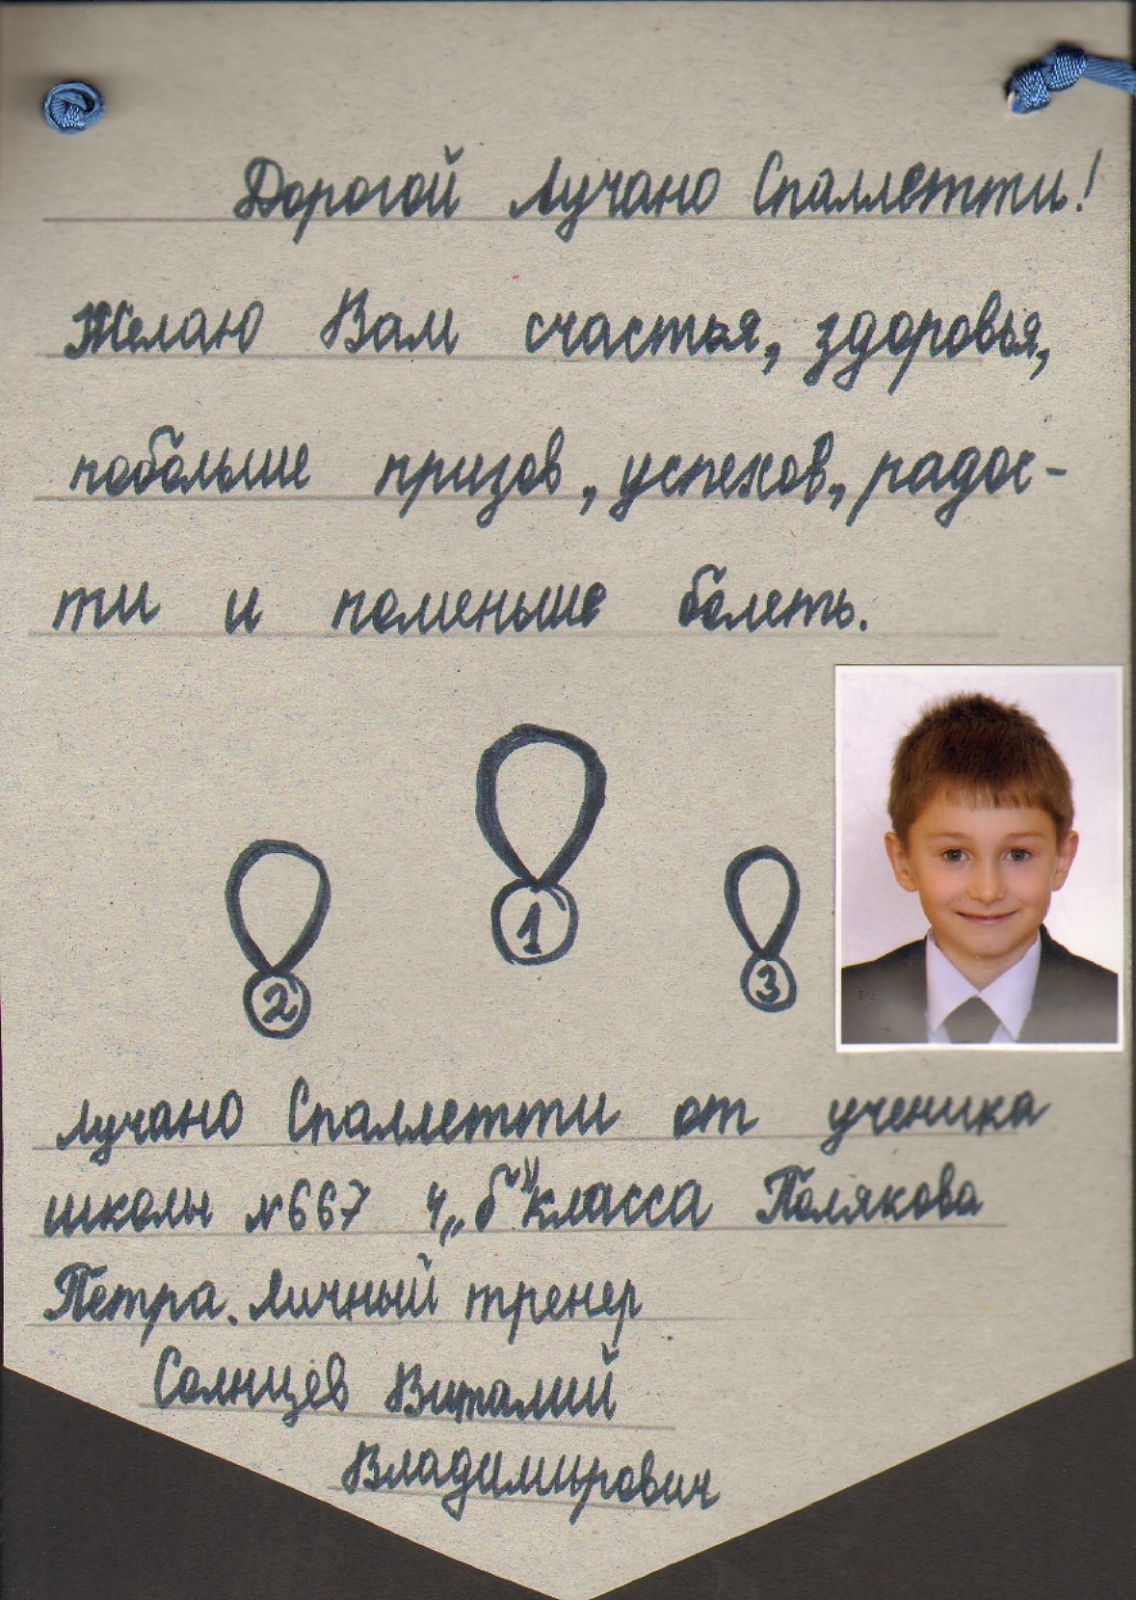 Дорогой Лучано Спаллетти!
Желаю Вам счастья, здоровья,
побольше призов, успехов, радос-
ти и поменьше болеть.
1
2
3
Лучано Спаллетти от ученика
школы №667 4 „б" класса Полякова
Петра. Личный тренер
Солнцев Виталий
Владимирович